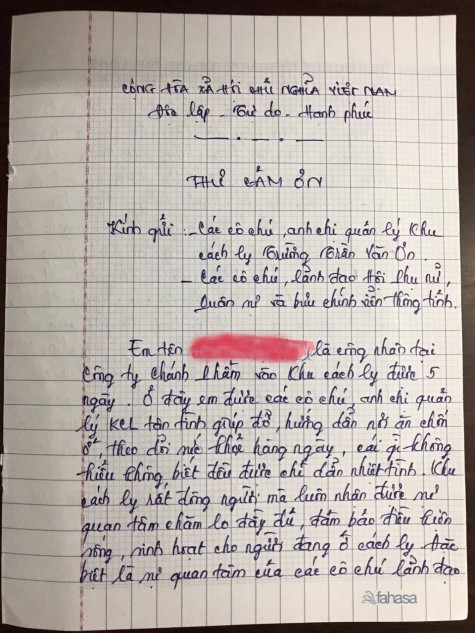 CỘNG HÒA XÃ HỘI CHỦ NGHĨA VIỆT NAM
Độc lập - Tự do - Hạnh phúc
THƯ CẢM ƠN
Kính gửi: - Các cô chú, anh chị quản lý khu
cách ly Trường Trần Văn Ơn.
- Các cô chú, lãnh đạo Hội Phụ nữ,
Quân sự và bưu chính viễn thông tỉnh.
Em tên là công nhân tại
Công ty chánh thắm vào khu cách ly được 5
ngày. Ở đây em được các cô chú, anh chị quản
lý KCL tận tình giúp đỡ, hướng dẫn nơi ăn chốn
ở, theo dõi sức khỏe hàng ngày, cái gì không
hiểu không biết đều được chỉ dẫn nhiệt tình. Khu
cách ly rất đông người mà luôn nhận được sự
quan tâm chăm lo đầy đủ, đảm bảo điều kiện
sống, sinh hoạt cho người đang ở cách ly đặc
biệt là sự quan tâm của các cô chú lãnh đạo
fahasa